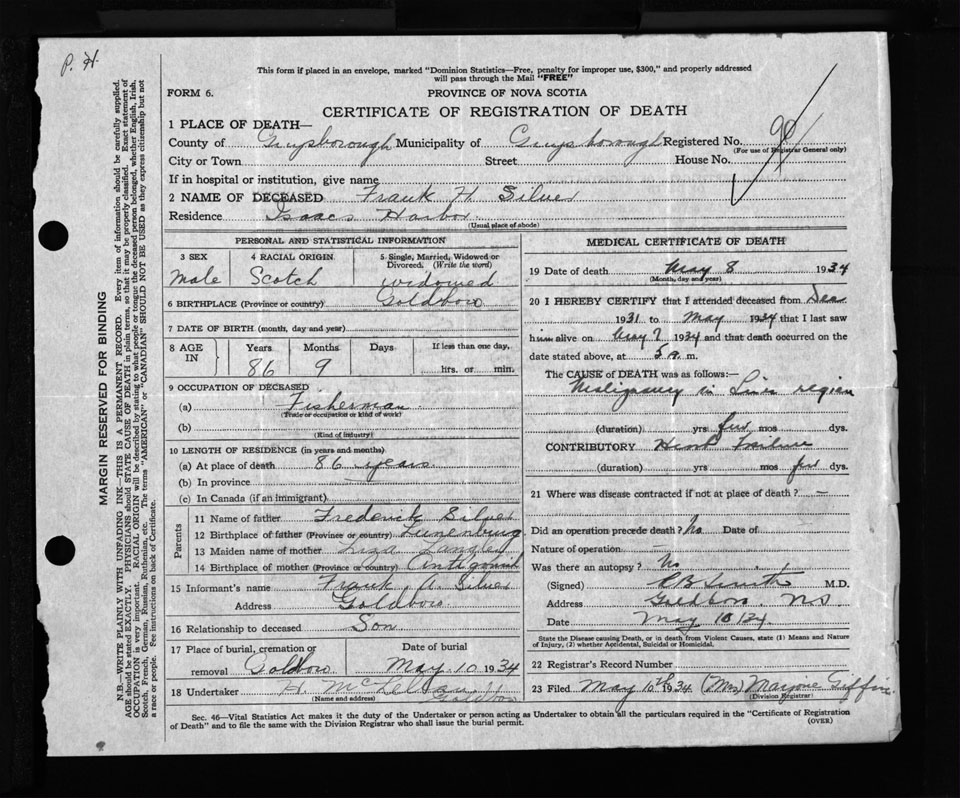 P. H.
This form if placed in an envelope, marked "Dominion Statistics—Free, penalty for improper use, $300," and properly addressed
will pass through the Mail "FREE"
FORM 6.
PROVINCE OF NOVA SCOTIA
CERTIFICATE OF REGISTRATION OF DEATH
1 PLACE OF DEATH—
County of Guysborough Municipality of Guysborough Registered No.
(For use of Registrar General only)
City or Town Street House No.
If in hospital or institution, give name
2 NAME OF DECEASED Frank H. Silver
Residence Isaacs Harbor
(Usual place of abode)
PERSONAL AND STATISTICAL INFORMATION
3 SEX 4 RACIAL ORIGIN 5 Single, Married, Widowed or Divorced. (Write the word)
Male Scotch widowed
6 BIRTHPLACE (Province or country) Goldboro
7 DATE OF BIRTH (month, day and year)
8 AGE IN Years Months Days If less than one day,
86 9 hrs. or min.
9 OCCUPATION OF DECEASED
(a) Fisherman
(Trade or occupation or kind of work)
(b)
(Kind of industry)
10 LENGTH OF RESIDENCE (in years and months)
(a) At place of death 86 years
(b) In province
(c) In Canada (if an immigrant)
Parents
11 Name of father Frederick Silver
12 Birthplace of father (Province or country) Lunenburg
13 Maiden name of mother Liza Langley
14 Birthplace of mother (Province or country) Antigonish
15 Informant's name Frank A. Silver
Address Goldboro.
16 Relationship to deceased Son
17 Place of burial, cremation or removal Goldboro Date of burial May 10 1934
18 Undertaker A. McKellan Goldboro
(Name and address)
MEDICAL CERTIFICATE OF DEATH
19 Date of death May 8 1934
(Month, day and year)
20 I HEREBY CERTIFY that I attended deceased from
1931 to May 1934 that I last saw
him alive on May 7 1934 and that death occurred on the
date stated above, at 5 a. m.
The CAUSE of DEATH was as follows:—
Malignancy in Liver region
(duration) yrs few mos dys.
CONTRIBUTORY Heart Failure
(duration) yrs mos few dys.
21 Where was disease contracted if not at place of death? —
Did an operation precede death? No Date of
Nature of operation
Was there an autopsy? No
(Signed) Smith M.D.
Address Goldboro, N.S.
Date May 10/34
State the Disease causing Death, or in death from Violent Causes, state (1) Means and Nature
of Injury, (2) whether Accidental, Suicidal or Homicidal.
22 Registrar's Record Number
23 Filed May 10th 1934 (Mrs) Marjorie Giffin
(Division Registrar)
Sec. 46—Vital Statistics Act makes it the duty of the Undertaker or person acting as Undertaker to obtain all the particulars required in the "Certificate of Registration
of Death" and to file the same with the Division Registrar who shall issue the burial permit.
(OVER)
MARGIN RESERVED FOR BINDING
N.B.—WRITE PLAINLY WITH UNFADING INK—THIS IS A PERMANENT RECORD. Every item of information should be carefully supplied.
AGE should be stated EXACTLY. PHYSICIANS should STATE CAUSE OF DEATH in plain terms, so that it may be properly classified. Exact statement of
OCCUPATION is very important. RACIAL ORIGIN will be described by stating to what people or tongue the deceased person belonged, whether English, Irish,
Scotch, French, German, Russian, Ruthenian, etc. The terms "AMERICAN" or "CANADIAN" SHOULD NOT BE USED as they express citizenship but not
a race or people. See instructions on back of Certificate.